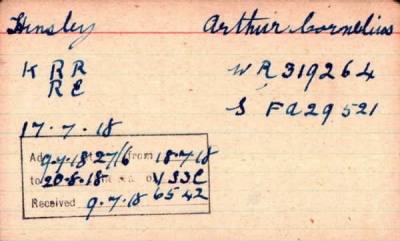 Hensley Arthur Cornelius
K RR WR 319264
RE S Fa29521
17.7.18
9.7.18 27/6 from 18.7.18
to 20.8.18
Received 9.7.18 6542